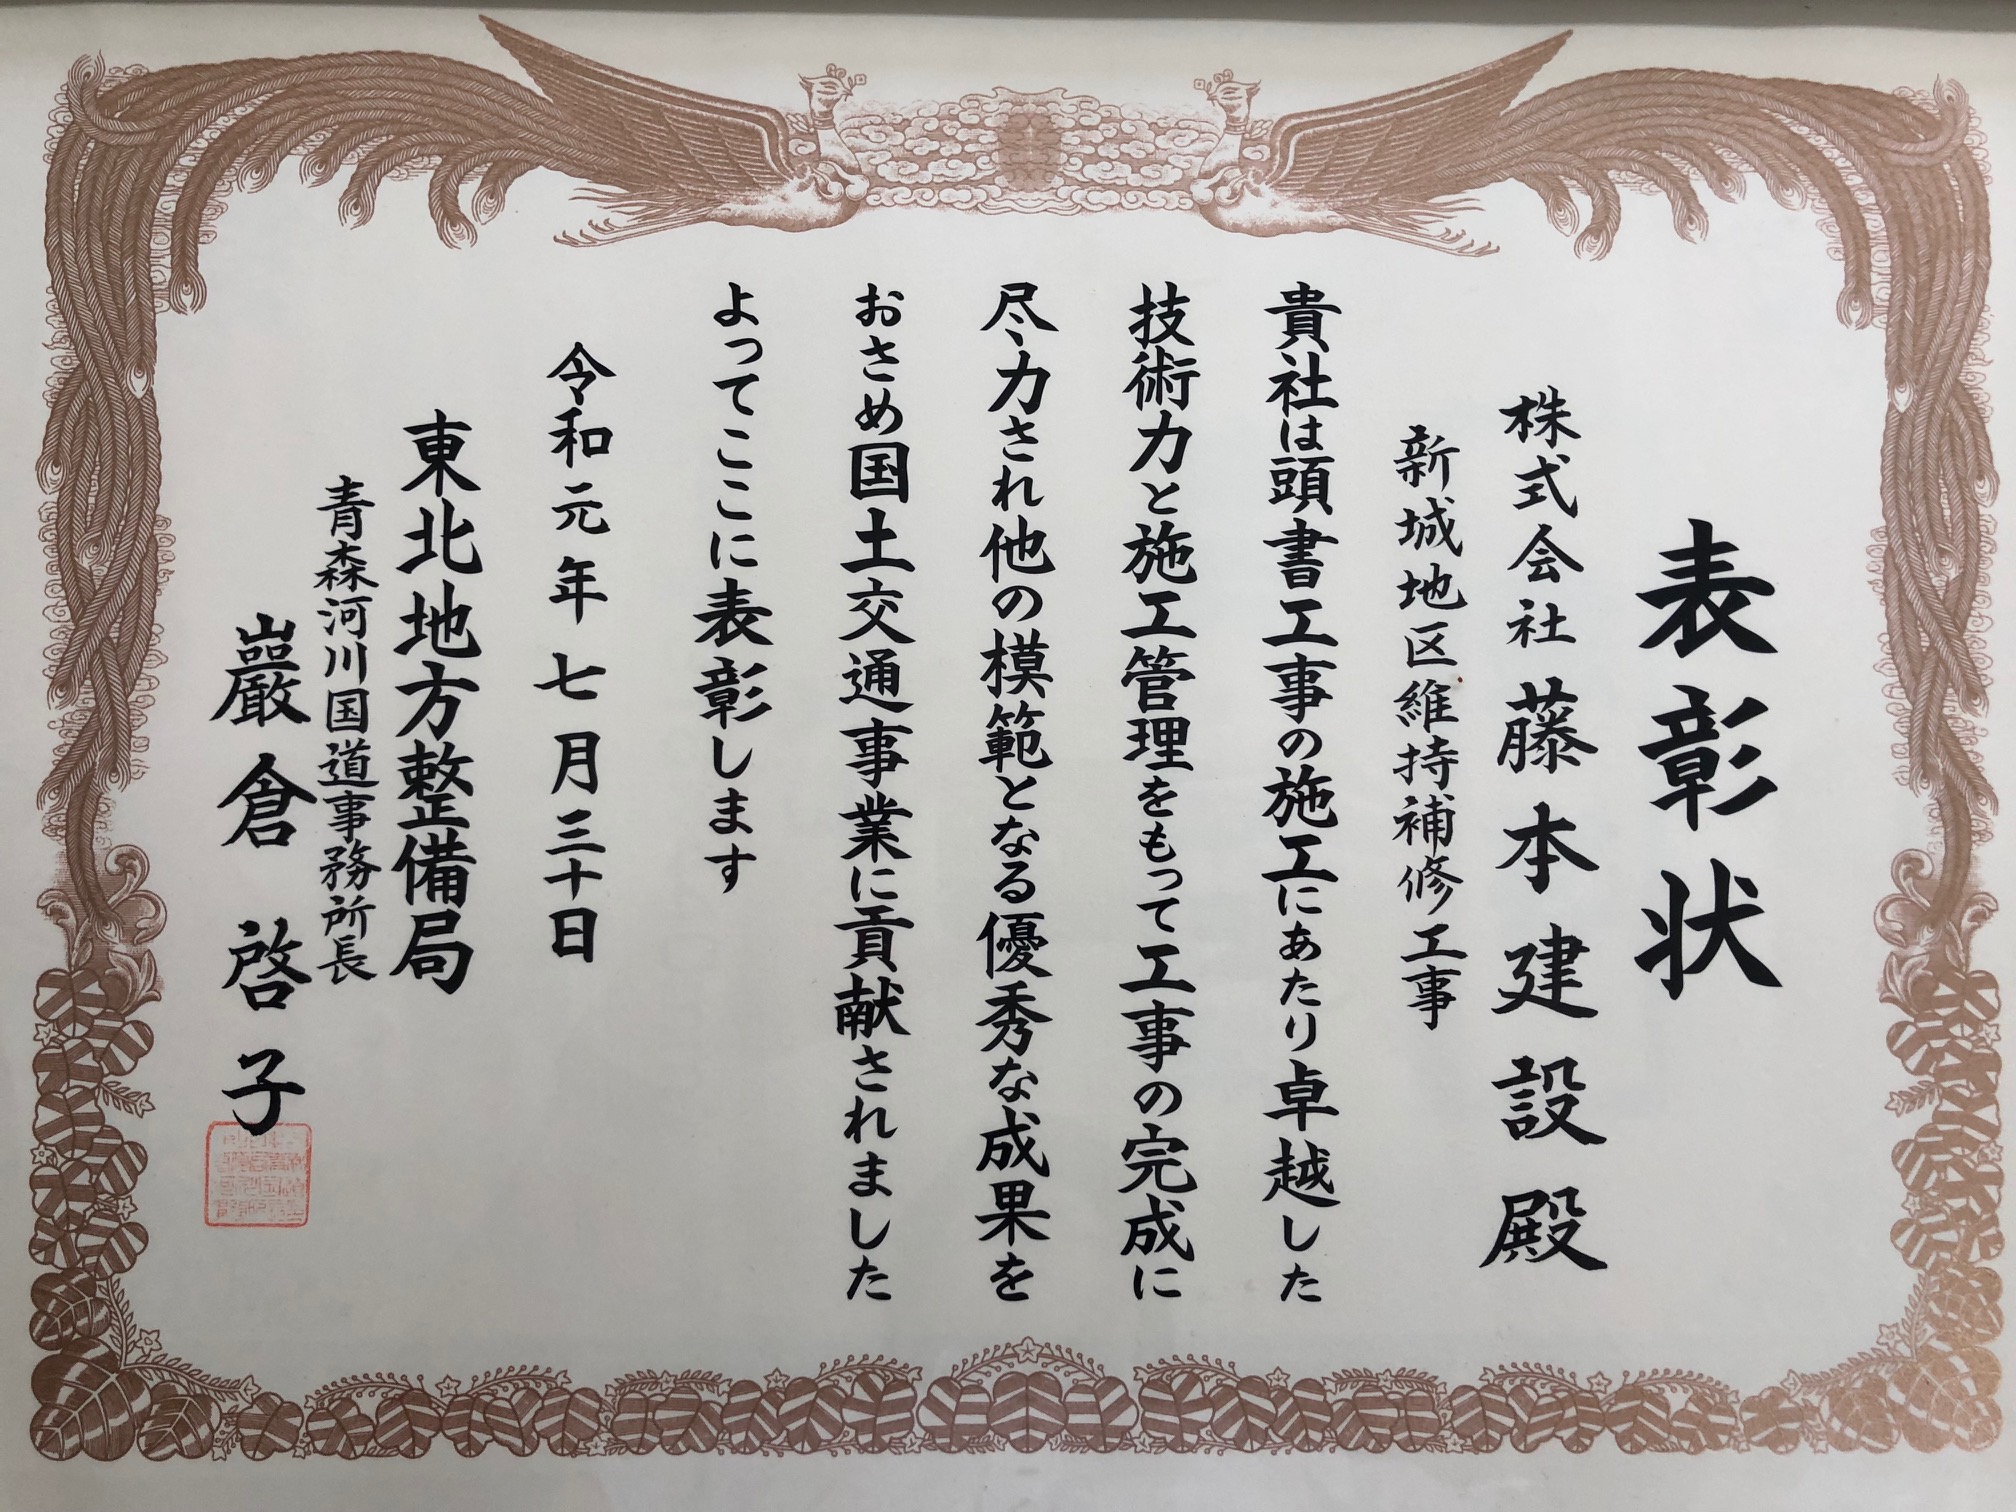 表彰状
株式会社藤本建設殿
新城地区維持補修工事
貴社は頭書工事の施工にあたり卓越した
技術力と施工管理をもって工事の完成に
尽力され他の模範となる優秀な成果を
おさめ国土交通事業に貢献されました
よってここに表彰します
令和元年七月三十日
東北地方整備局
青森河川国道事務所長
巖倉啓子